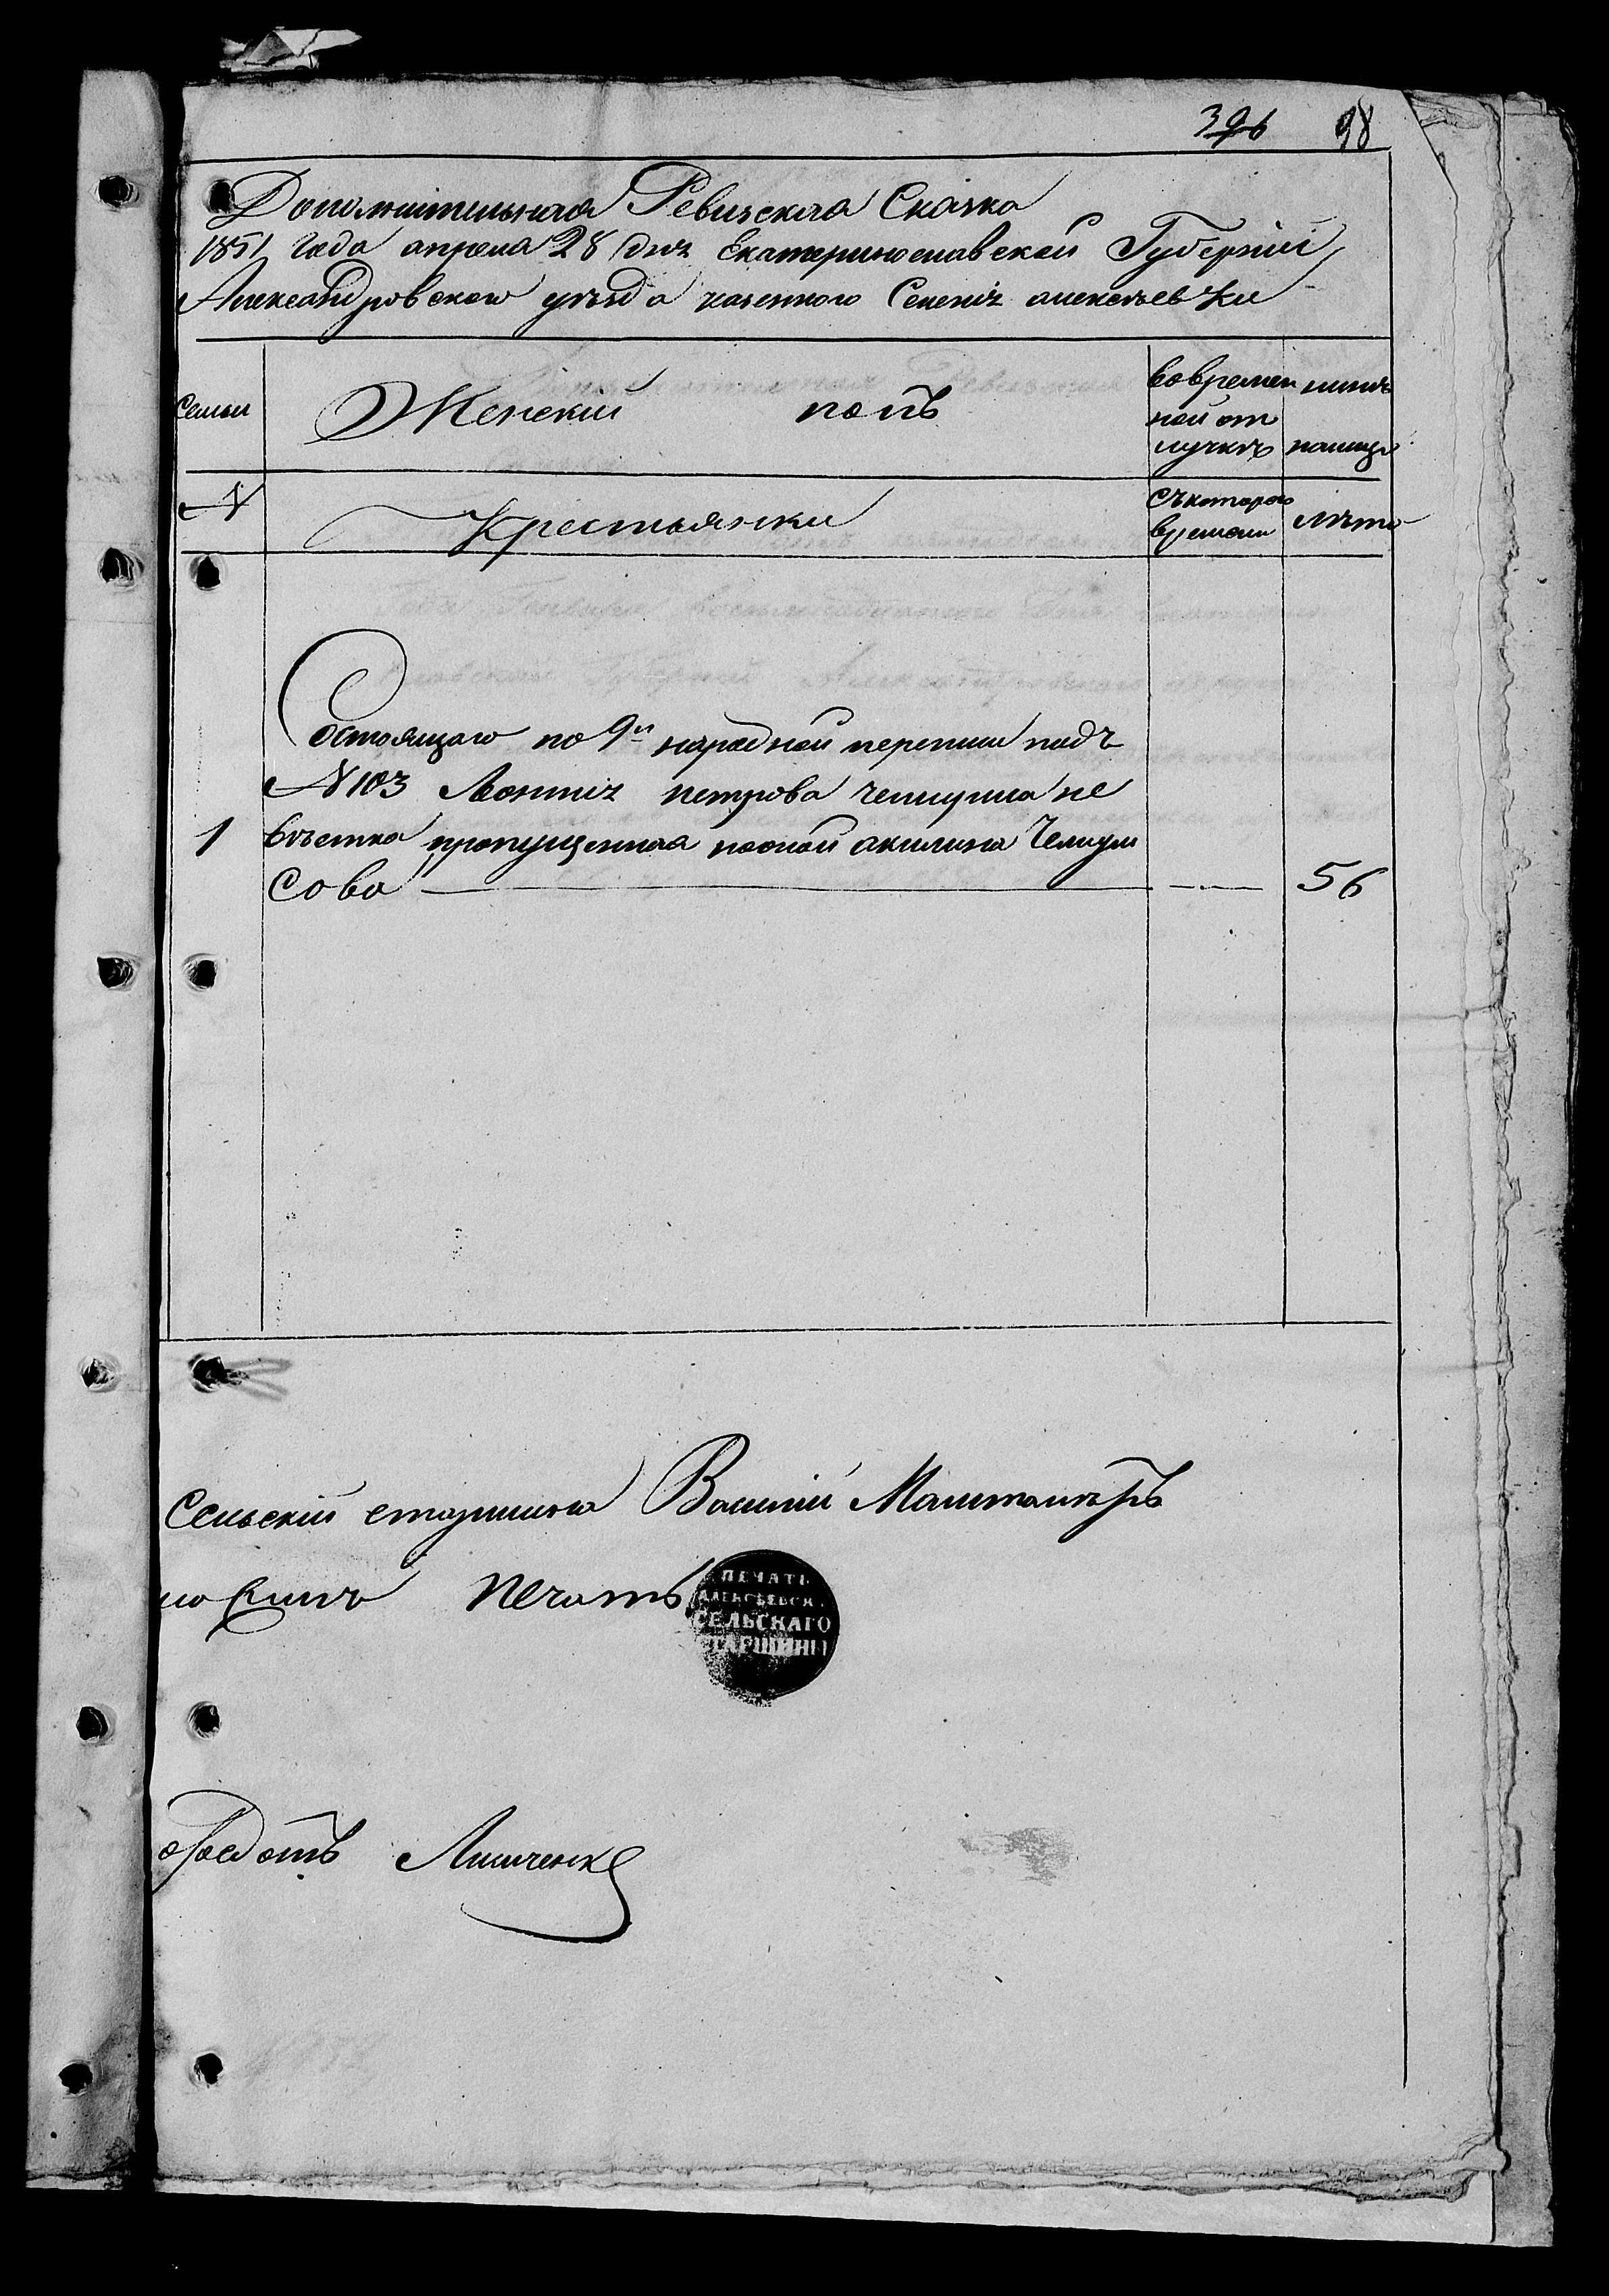 396 98
Дополнительная Ревизская Сказка
1851 года апреля 28 дня Екатеринославской Губернии
Александровского уезда казенного Селения алексеевки
Семьи
Женский полъ
вовремен
ной от
лучке
ныне
налицо
N
Крестьянки
Съкотораго
времени
лета
Состоящаго по 9й народной переписи подъ
N 103 Леонтия петрова челнуша не
1 вестка пропущенная показкой акилина Челнуш
Сова 56
Сельский старшина Василий
печать
ПЕЧАТЬ
АЛЕКСѢЕВСК.
СЕЛЬСКАГО
СТАРШИНЫ